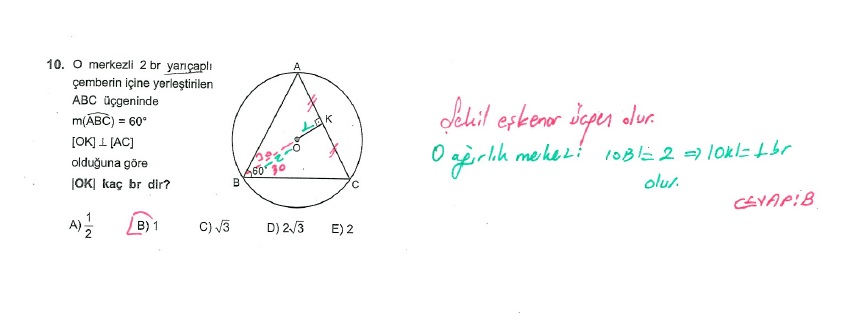 10. O merkezli 2 br yarıçaplı
çemberin içine yerleştirilen
ABC üçgeninde
m(ABC) = 60°
[OK] ⊥ [AC]
olduğuna göre
|OK| kaç br dir?
A
K
O
B
C
60°
30
30
2
⊥
A) 1/2 B) 1 C) √3 D) 2√3 E) 2
Şekil eşkenar üçgen olur.
O ağırlık merkezi |OB|=2 ⇒ |OK|=1 br
olur.
CEVAP: B